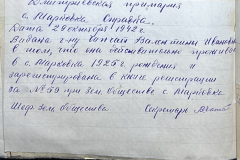 Дмитриевская примария
с. Марковка Справка.
Дата 29 октября 1942 г.
Выдана г-ну Вам Валентини Ивановн
в том, что она действительно прожива
в с. Марковка 1925 г. рождения и
зарегистрирована в книге регистрации
за № 50 при Зем. Обществе с Марковка
Шеф Зем. Общества Секретарь